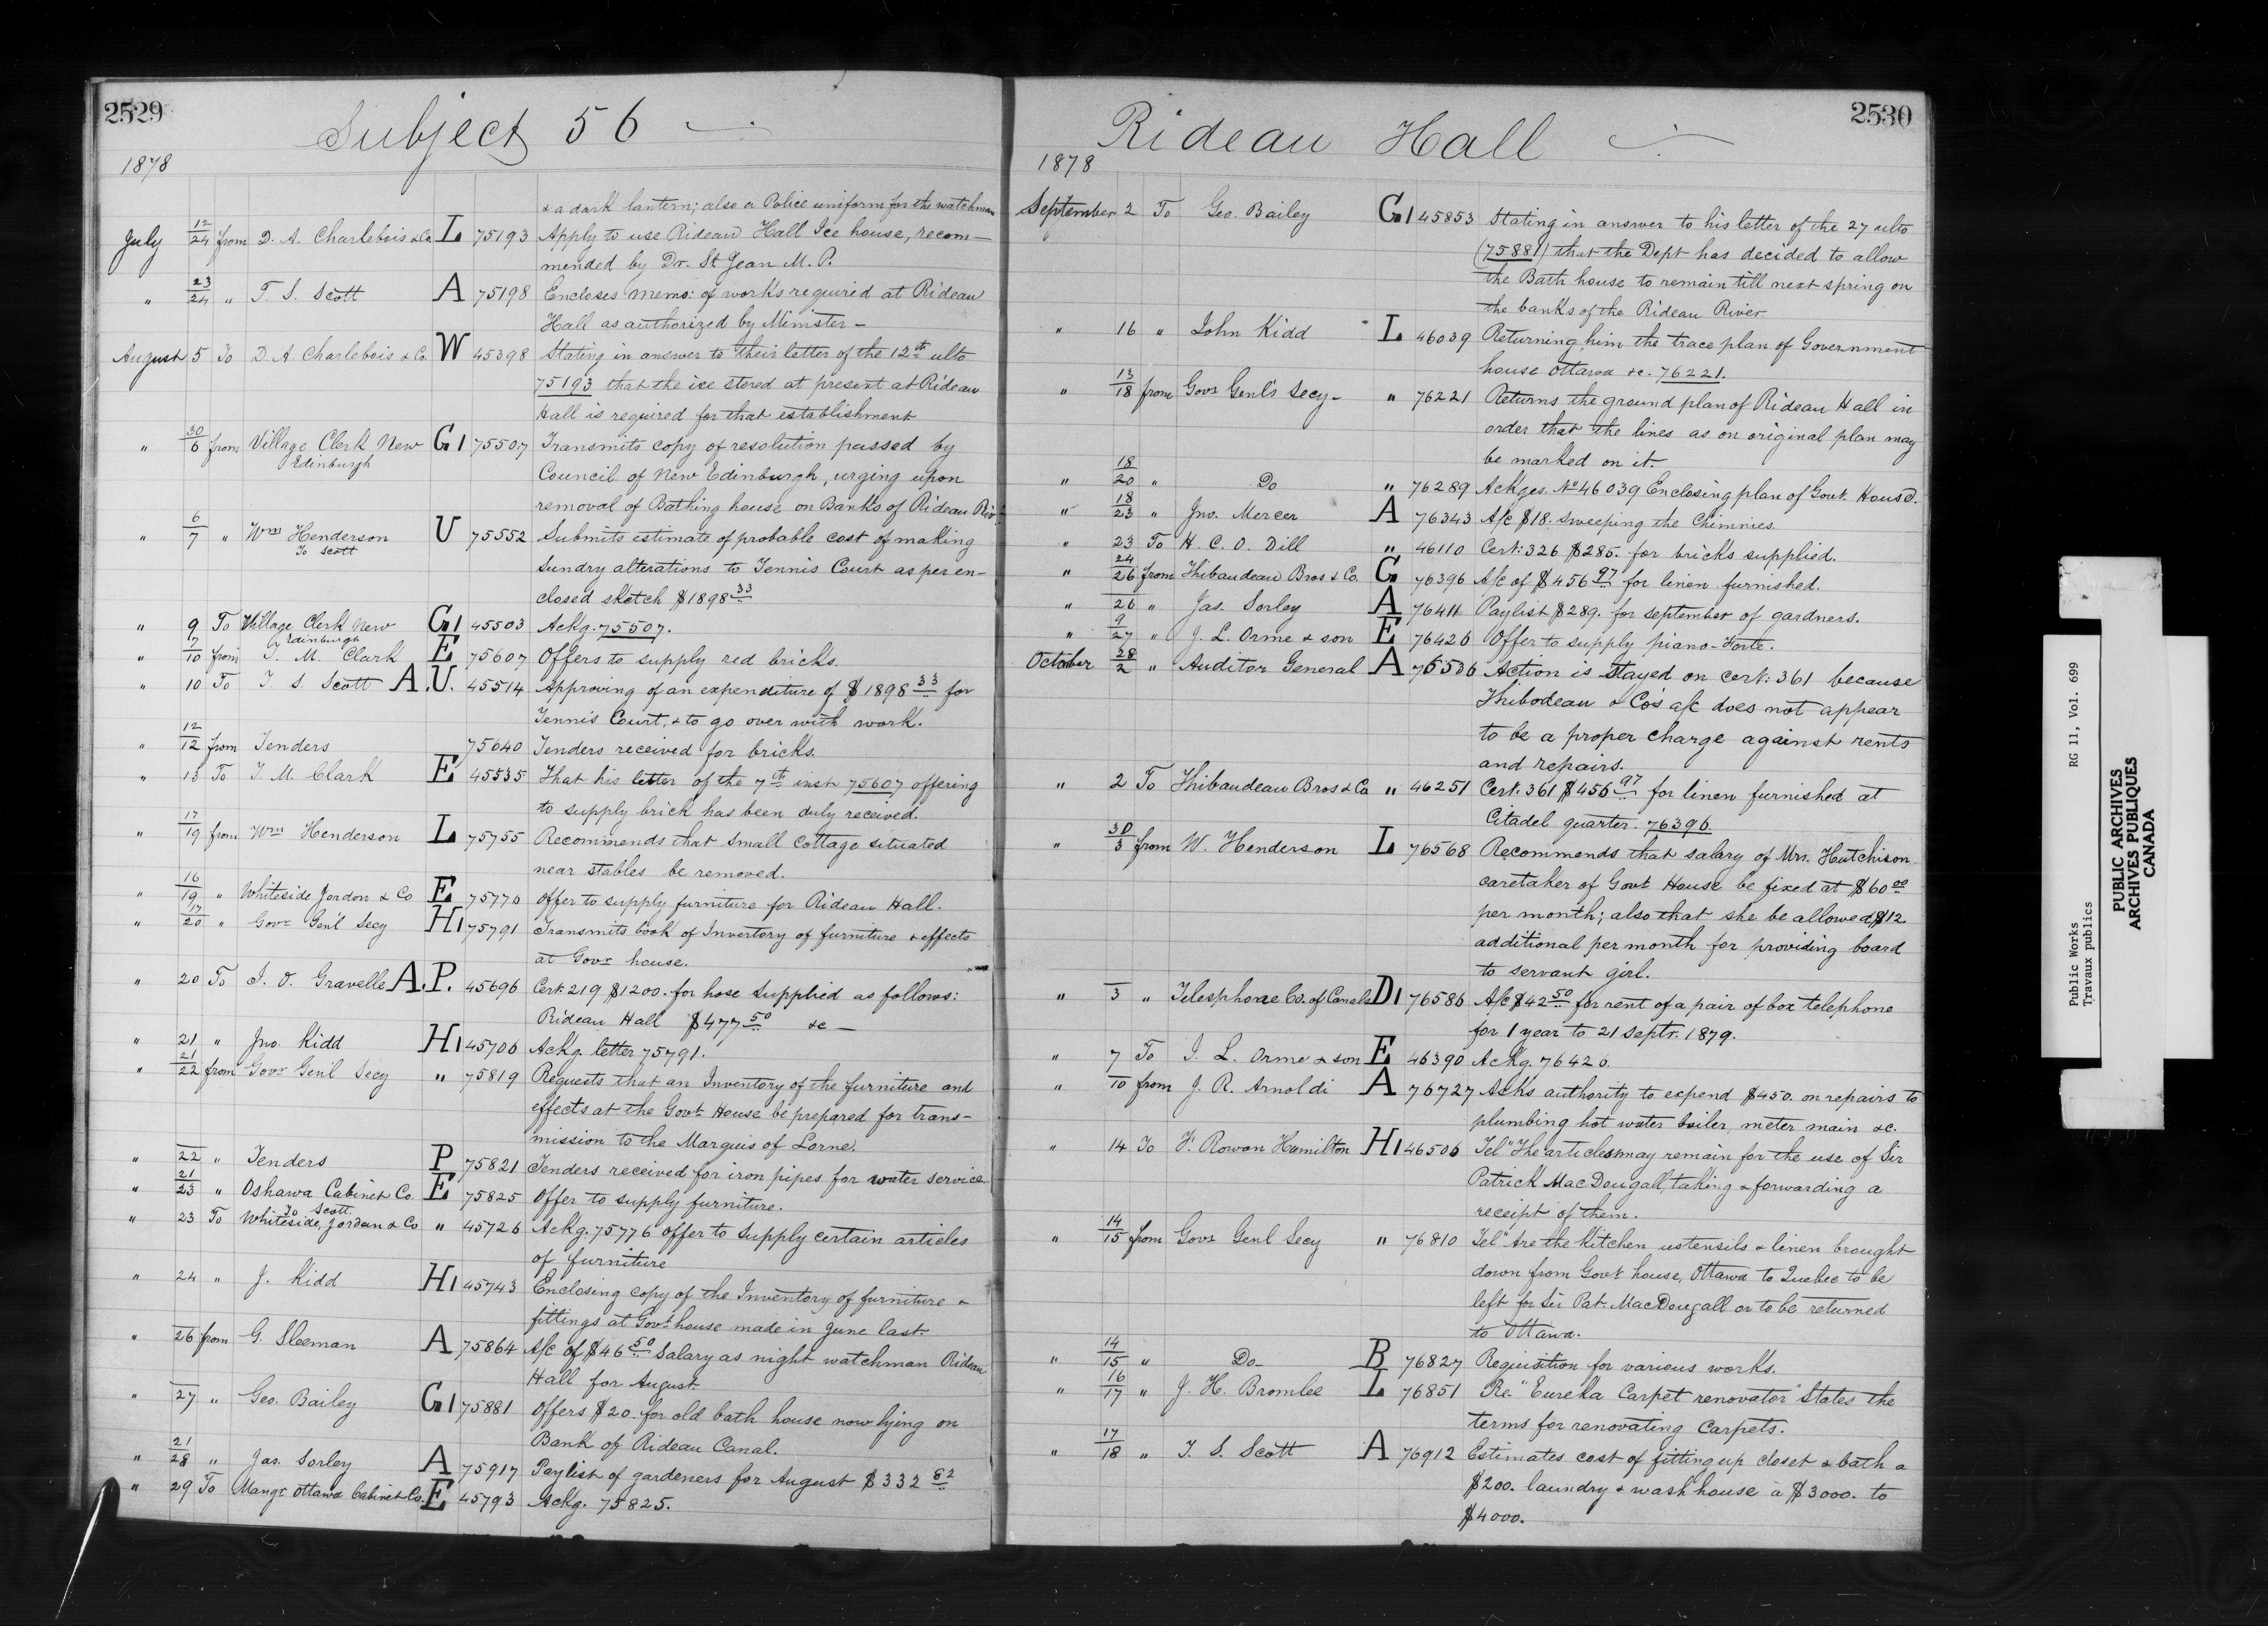 2529
Subject 56
1878
& a dark lantern; also a Police uniform for the watchman
July 12/24 from D. A. Charlebois & Co L 75193 Apply to use Rideau Hall Ice house, recom-
mended by Dr. St Jean M. P.
" 23/24 " T. S. Scott A 75198 Encloses memo: of works required at Rideau
Hall as authorized by Minister -
August 5 To D. A. Charlebois & Co. W 45398 Stating in answer to their letter of the 12th ulto
75193 that the ice stored at present at Rideau
Hall is required for that establishment
" 30/6 from Village Clerk New G1 75507 Transmits copy of resolution passed by
Edinburgh
Council of New Edinburgh, urging upon
removal of Bathing house on Banks of Rideau Riv.
" 6/7 " Wm Henderson U 75552 Submits estimate of probable cost of making
To Scott
Sundry alterations to Tennis Court as per en-
closed sketch $1898 33
" 9 To Village Clerk New G1 45503 Ackg. 75507.
Edinburgh
" 7/10 from T. M. Clark E 75607 Offers to supply red bricks.
" 10 To T. S. Scott A.U. 45514 Approving of an expenditure of $1898 33 for
Tennis Court, & to go over with work.
" 12/12 from Tenders 75640 Tenders received for bricks.
" 13 To T. M. Clark E 45535 That his letter of the 7th inst 75607 offering
to supply brick has been duly received.
" 17/19 from Wm Henderson L 75755 Recommends that small cottage situated
near stables be removed.
" 16/19 " Whiteside Jordon & Co E 75770 Offer to supply furniture for Rideau Hall.
" 17/20 " Govr Gen'l Secy H1 75791 Transmits book of Inventory of furniture & effects
at Govr house.
" 20 To J. O. Gravelle A.P. 45696 Cert. 219 $1200. for hose supplied as follows:
Rideau Hall $477 50 &c -
" 21 " Jno. Kidd H1 45706 Ackg. letter 75791.
" 21/22 from Govr Genl Secy " 75819 Requests that an Inventory of the furniture and
effects at the Govt House be prepared for trans-
mission to the Marquis of Lorne.
" 22 " Tenders P 75821 Tenders received for iron pipes for water service
" 21/23 " Oshawa Cabinet Co. E 75825 Offer to supply furniture.
To Scott
" 23 To Whiteside, Jordan & Co " 45726 Ackg. 75776 offer to supply certain articles
of furniture
" 24 " J. Kidd H1 45743 Enclosing copy of the Inventory of furniture &
fittings at Govt house made in June last.
" 26 from G. Sleeman A 75864 A/c of $46 50 Salary as night watchman Rideau
Hall for August
" 27 " Geo. Bailey G1 75881 Offers $20. for old bath house now lying on
Bank of Rideau Canal.
" 21/28 " Jas. Sorley A 75917 Paylist of gardeners for August $332 62
" 29 To Mangr Ottawa Cabinet Co. E 45793 Ackg. 75825.
2530
Rideau Hall
1878
September 2 To Geo. Bailey G1 45853 Stating in answer to his letter of the 27 ulto
(75881) that the Dept has decided to allow
the Bath house to remain till next spring on
the banks of the Rideau River.
" 16 " John Kidd L 46039 Returning him the trace plan of Government
house Ottawa &c. 76221.
" 13/18 from Govr Genl's Secy - " 76221 Returns the ground plan of Rideau Hall in
order that the lines as on original plan may
be marked on it.
" 18/20 " Do " 76289 Ackges. No 46039 Enclosing plan of Govt. House.
" 18/23 " Jno. Mercer A 76343 A/c $18. Sweeping the Chimnies.
" 23 To H. C. O. Dill " 46110 Cert: 326 $285. for bricks supplied.
" 24/26 from Thibaudeau Bros & Co. G 76396 A/c of $456 97 for linen furnished.
" 26 " Jas. Sorley A 76411 Paylist $289. for september of gardners.
" 9/27 " J. L. Orme & son E 76426 Offer to supply piano-Forte.
October 28/2 " Auditor General A 76536 Action is stayed on cert: 361 because
Thibodeau & Co's a/c does not appear
to be a proper charge against rents
and repairs.
" 2 To Thibaudeau Bros & Co " 46251 Cert. 361 $456 97 for linen furnished at
Citadel quarter. 76396
" 30/3 from W. Henderson L 76568 Recommends that salary of Mrs. Hutchison
caretaker of Govt House be fixed at $60 00
per month; also that she be allowed $12
additional per month for providing board
to servant girl.
" 3 " Telesphone Co. of Canada D1 76586 A/c $42 50 for rent of a pair of box telephone
for 1 year to 21 Septr. 1879.
" 7 To J. L. Orme & son E 46390 Ackg. 76426.
" 10 from J. R. Arnoldi A 76727 Asks authority to expend $450. on repairs to
plumbing hot water boiler, meter main &c.
" 14 To F. Rowan Hamilton H1 46506 Tel "The articles may remain for the use of Sir
Patrick MacDougall, taking & forwarding a
receipt of them.
" 14/15 from Govr Genl Secy " 76810 Tel "Are the kitchen ustensils & linen brought
down from Govt house, Ottawa to Quebec to be
left for Sir Pat. MacDougall or to be returned
to Ottawa.
" 14/15 " Do - B 76827 Requisition for various works.
" 16/17 " J. H. Bromlee L 76851 Re- "Eureka Carpet renovator" States the
terms for renovating Carpets.
" 17/18 " T. S. Scott A 76912 Estimates cost of fitting up closet & bath a
$200. laundry & wash house à $3000. to
$4000.
Public Works RG 11, Vol. 699
Travaux publics
PUBLIC ARCHIVES
ARCHIVES PUBLIQUES
CANADA